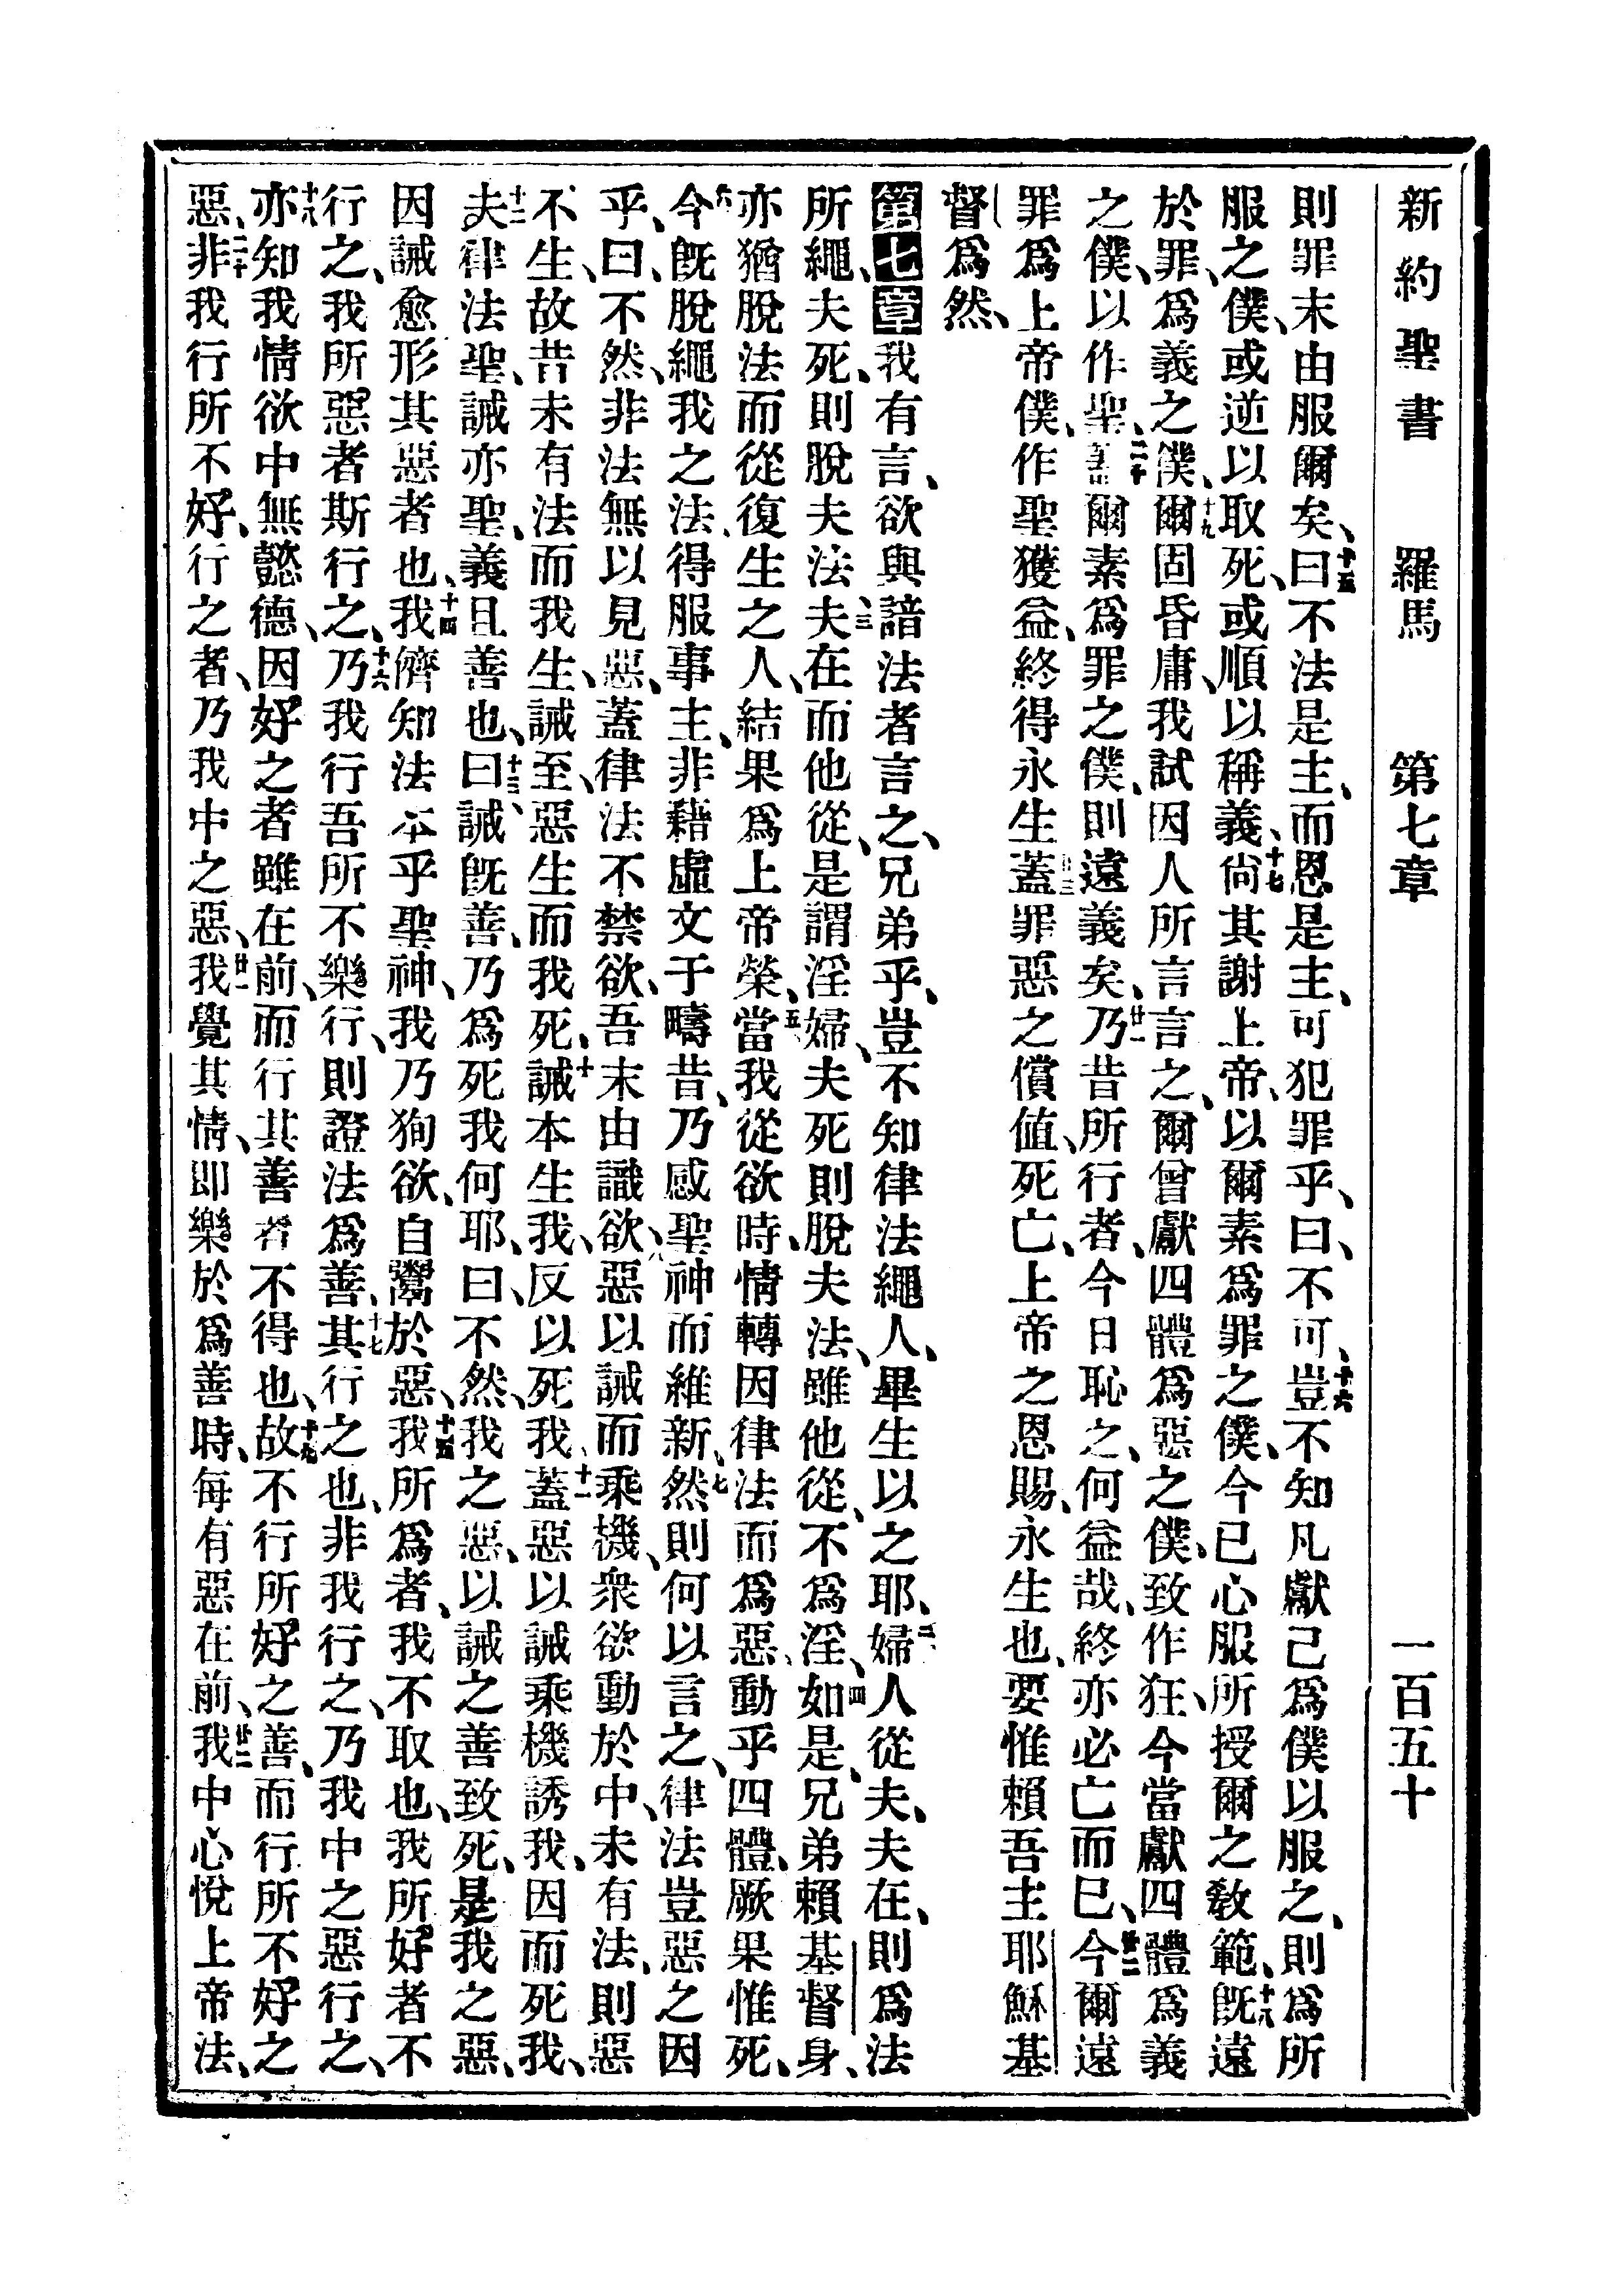 新約聖書 羅馬 第七章 一百五十
則罪末由服爾矣、十五曰不法是主、而恩是主、可犯罪乎、曰、不可、十六豈不知凡獻己爲僕以服之、則爲所
服之僕、或逆以取死、或順以稱義、十七尙其謝上帝、以爾素爲罪之僕、今已心服所授爾之敎範、十八旣遠
於罪、爲義之僕、十九爾固昏庸、我試因人所言言之、爾曾獻四體爲惡之僕、致作狂、今當獻四體爲義
之僕、以作聖、二十蓋爾素爲罪之僕、則遠義矣、廿一乃昔所行者、今日恥之、何益哉、終亦必亡而已、廿二今爾遠
罪爲上帝僕、作聖獲益、終得永生、廿三蓋罪惡之償値、死亡、上帝之恩賜、永生也、要惟賴吾主耶穌基
督爲然、
第七章我有言、欲與諳法者言之、兄弟乎、豈不知律法繩人、畢生以之耶、二婦人從夫、夫在、則爲法
所繩、夫死、則脫夫法、三夫在而他從、是謂淫婦、夫死則脫夫法、雖他從、不爲淫、四如是、兄弟賴基督身、
亦猶脫法而從復生之人、結果爲上帝榮、五當我從欲時、情轉因律法而爲惡、動乎四體、厥果惟死、
六今旣脫繩我之法、得服事主、非藉虛文于疇昔、乃感聖神而維新、七然則何以言之、律法豈惡之因
乎、曰、不然、非法無以見惡、蓋律法不禁欲、吾末由識欲、八惡以誡而乘機、衆欲動於中、未有法、則惡
不生、故昔未有法而我生、誡至、惡生而我死、十誡本生我、反以死我、十一蓋惡以誡乘機誘我、因而死我、
十二夫律法聖、誡亦聖、義且善也、十三曰、誡旣善、乃爲死我何耶、曰、不然、我之惡、以誡之善致死、是我之惡、
因誡愈形其惡者也、十四我儕知法本乎聖神、我乃狥欲、自鬻於惡、十五我所爲者、我不取也、我所好者不
行之、我所惡者斯行之、十六乃我行吾所不樂行、則證法爲善、十七其行之也、非我行之、乃我中之惡行之、
十八亦知我情欲中無懿德、因好之者雖在前、而行其善者不得也、十九故不行所好之善、而行所不好之
惡、二十非我行所不好、行之者、乃我中之惡、廿一我覺其情、卽樂於爲善時、每有惡在前、廿二我中心悅上帝法、